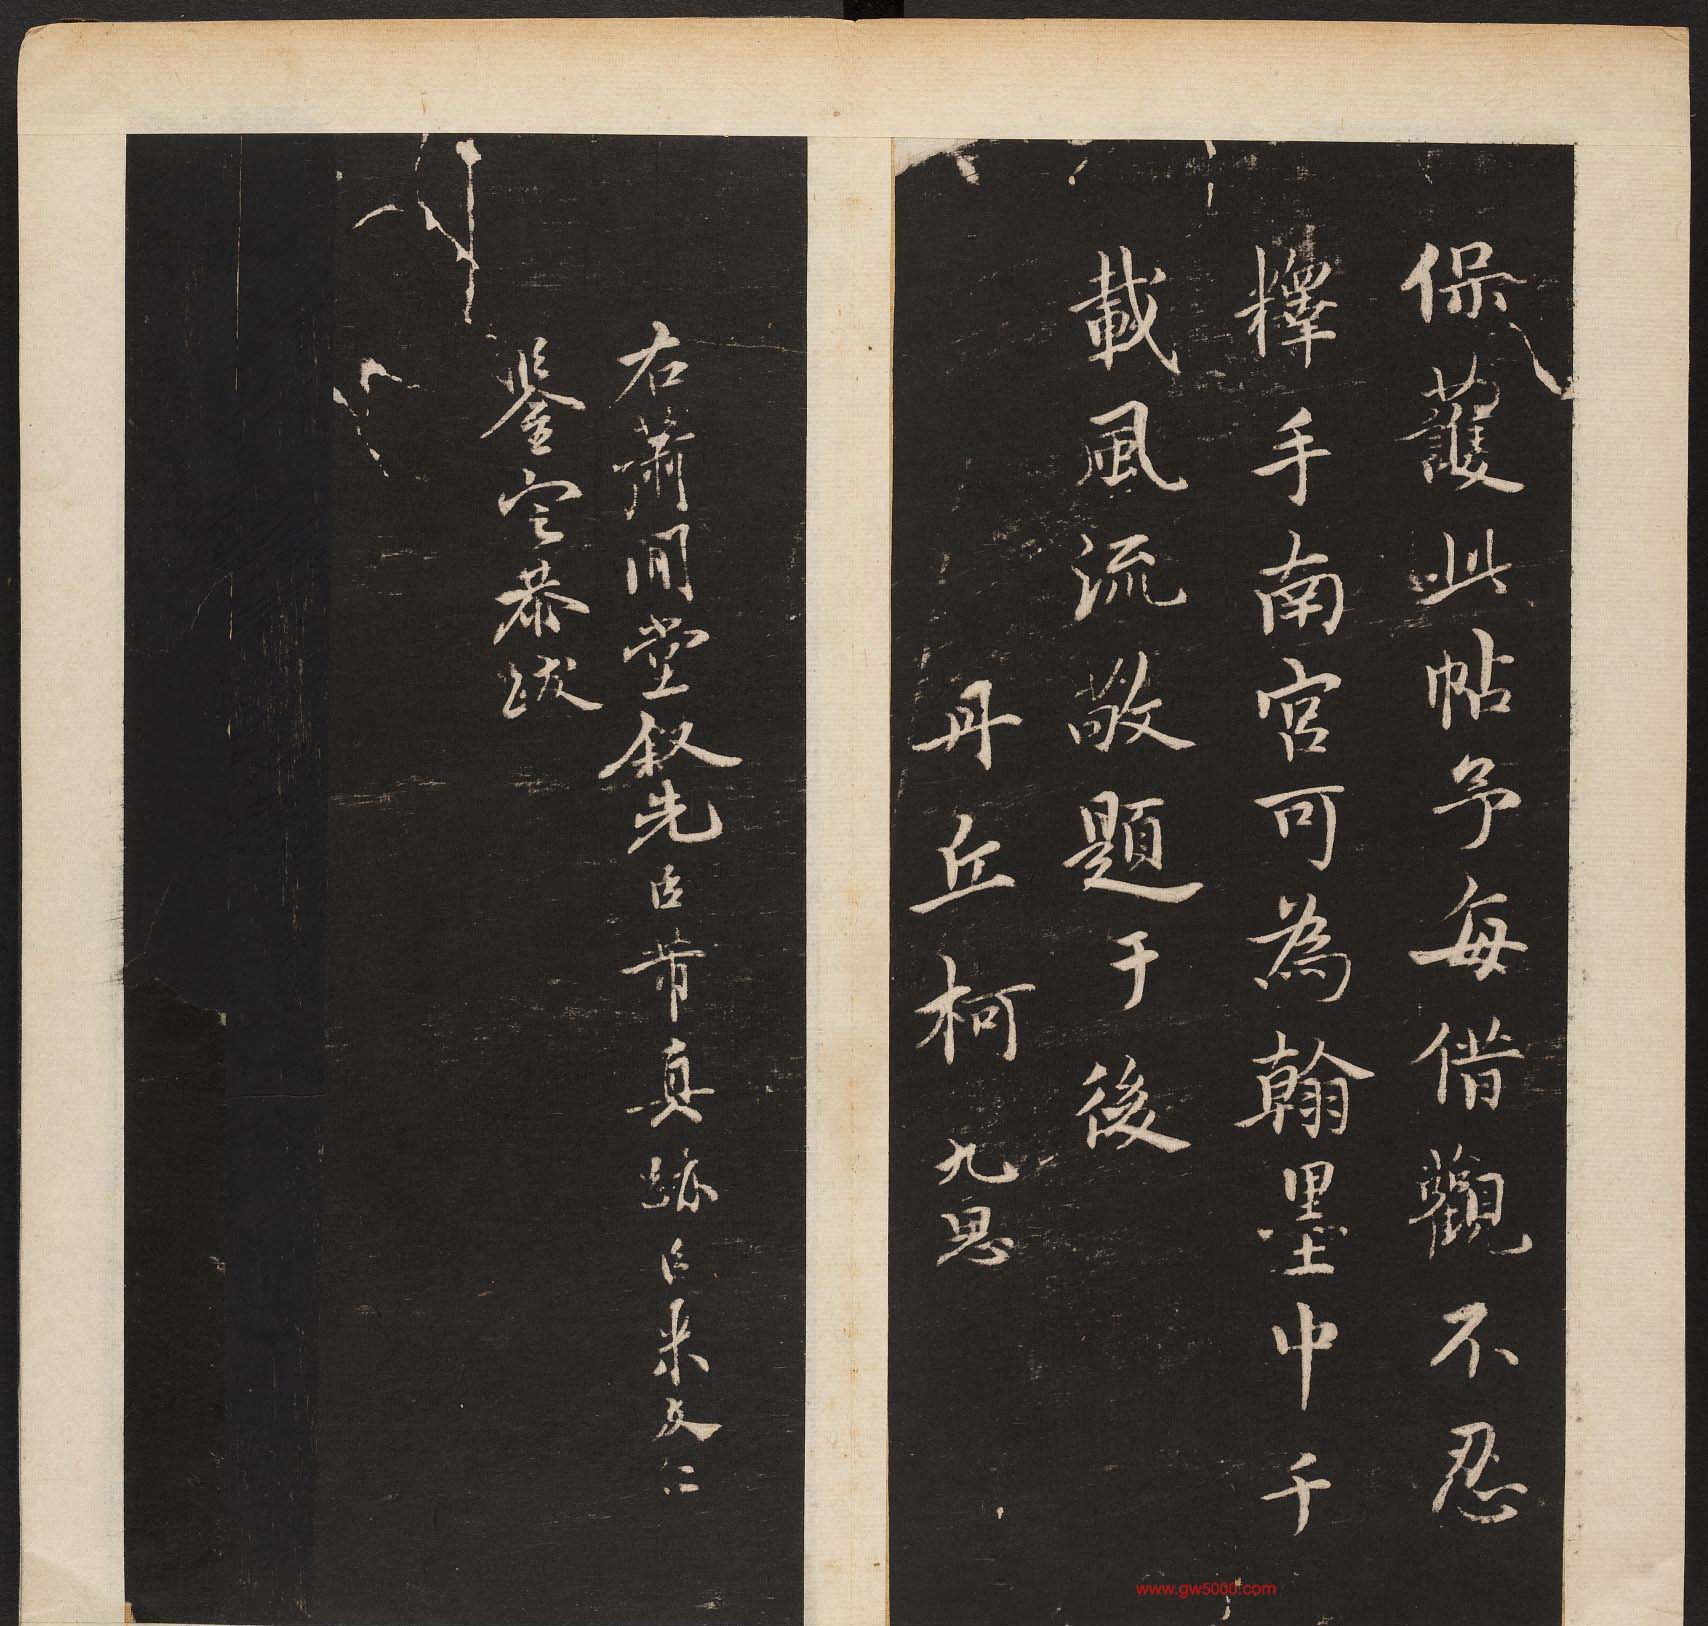 保護此帖予每借觀不忍
釋手南宮可為翰墨中千
載風流敬題于後
丹丘柯九思
右蕭閒堂叙先臣芾真跡臣米友仁
鑒定恭跋
www.gw5000.com